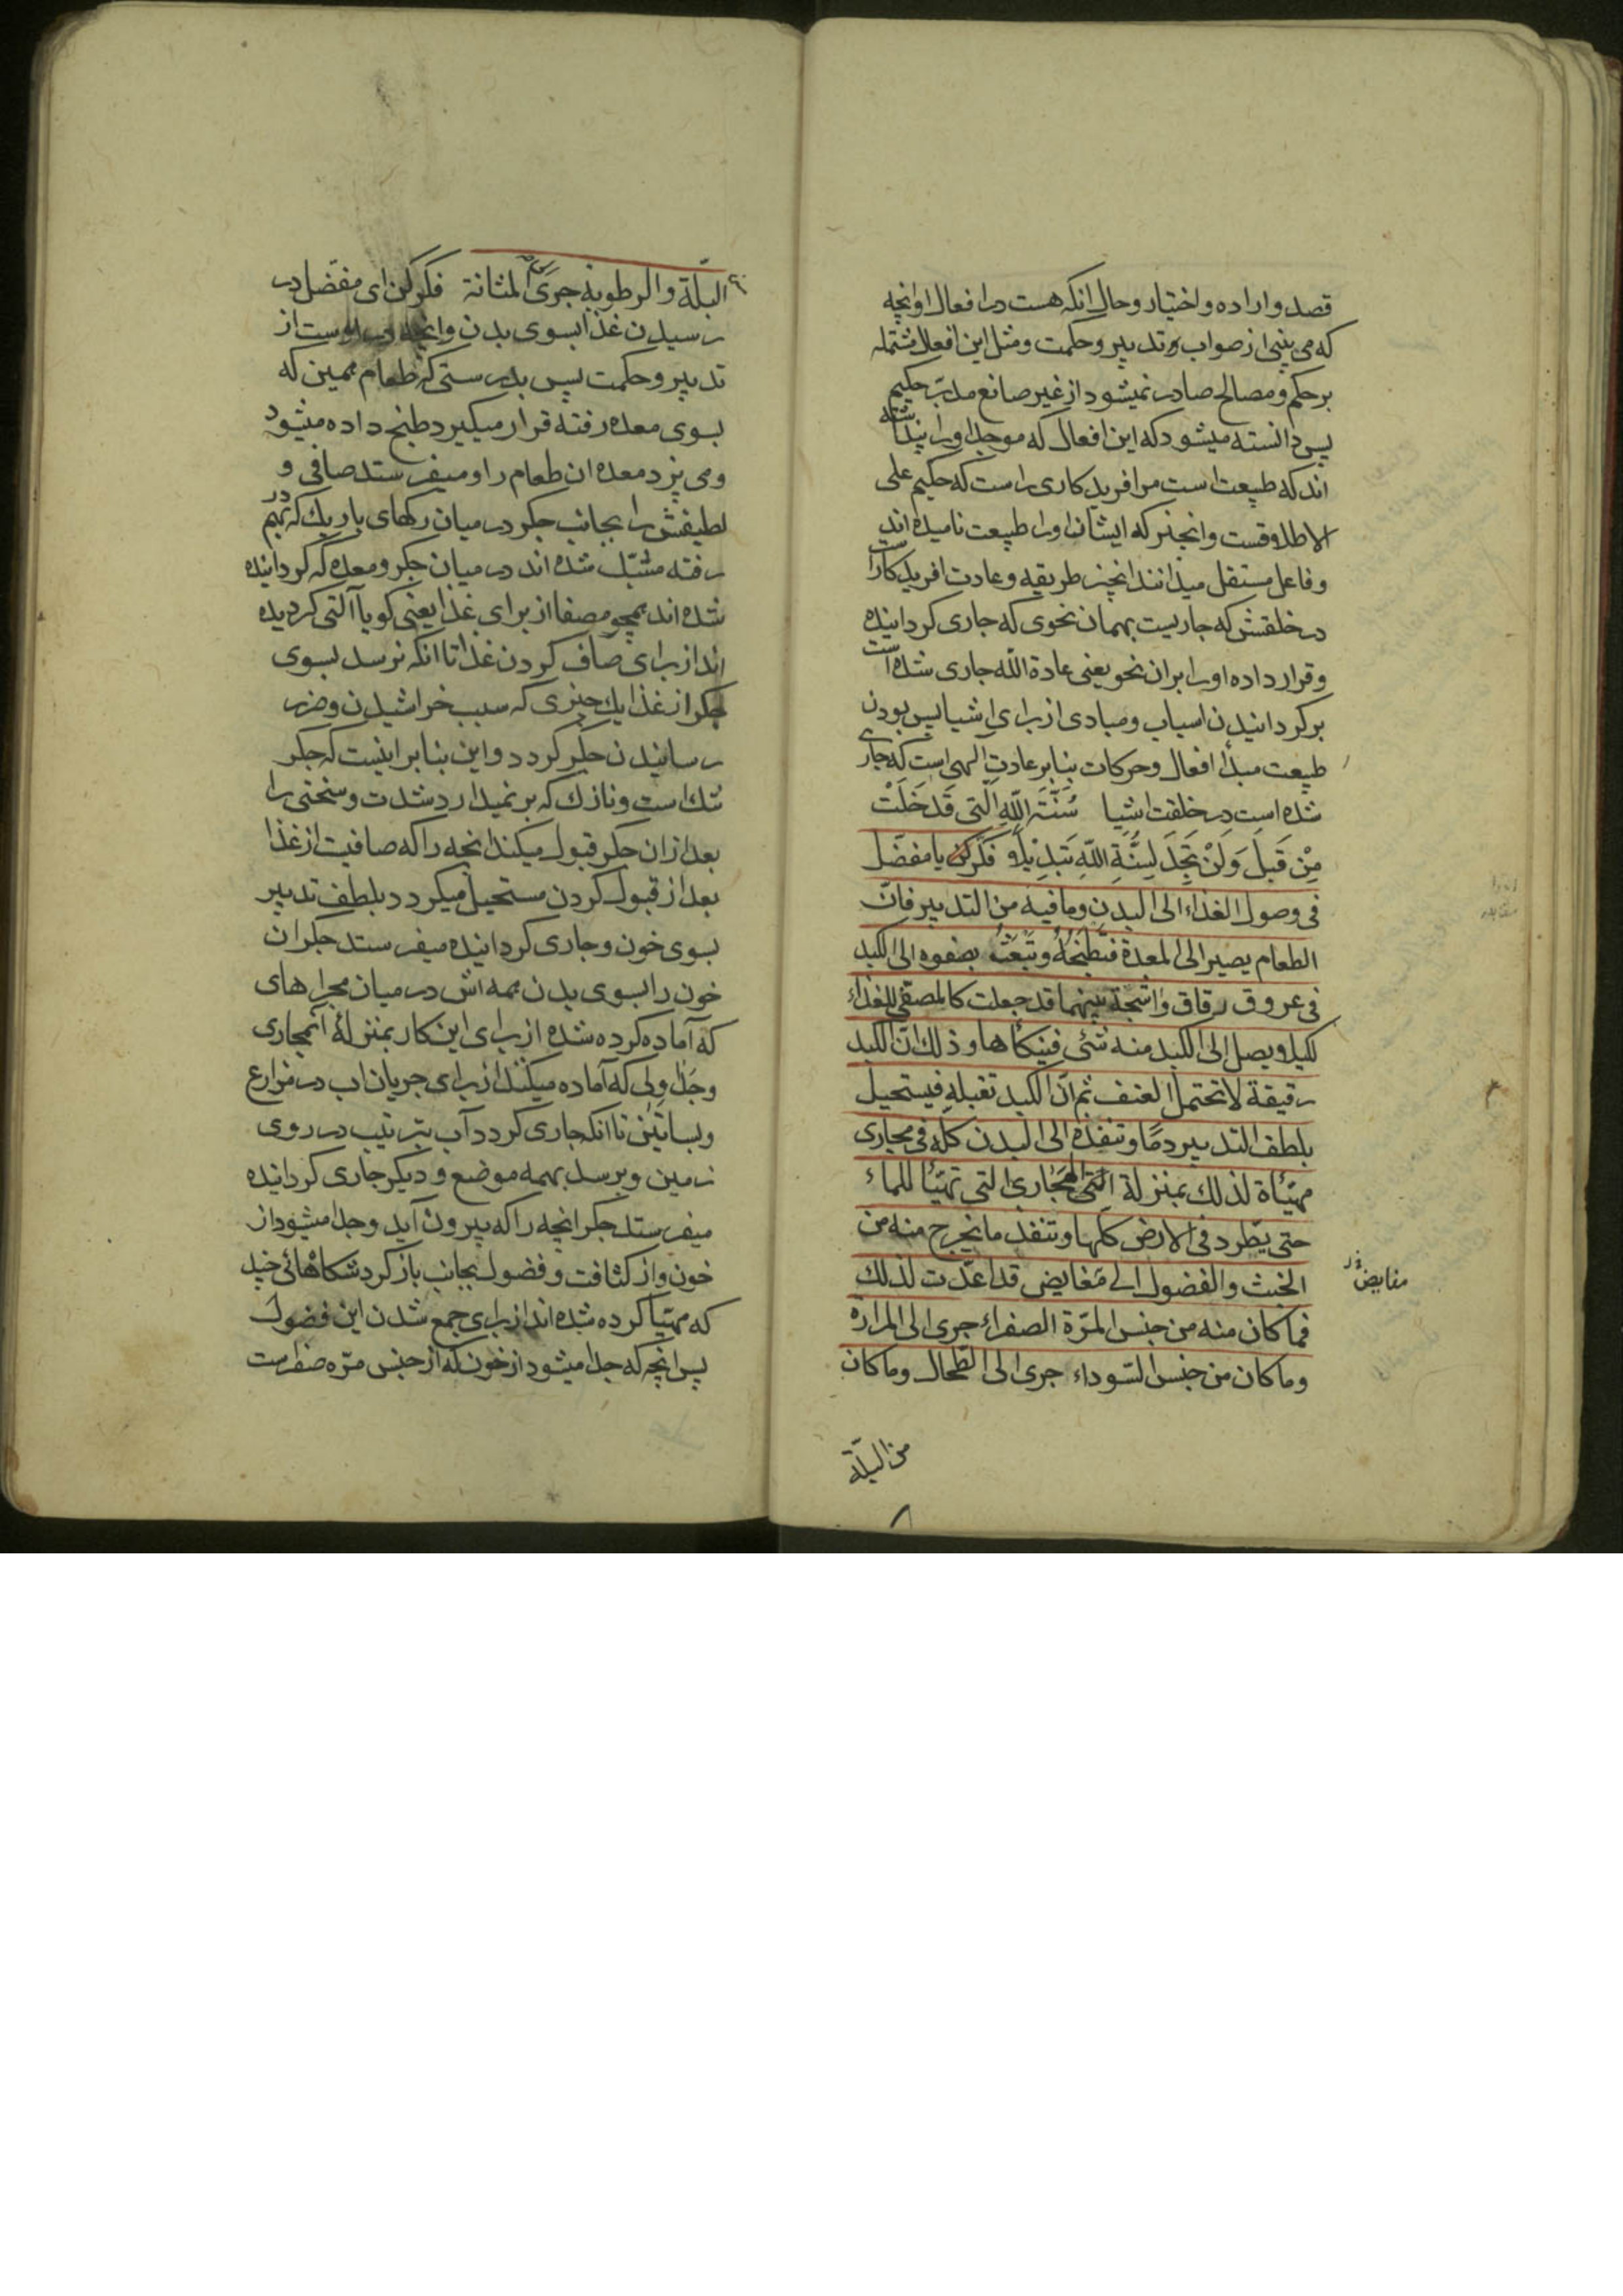 قصد و اراده و اختیار و حال انکه هست در افعال او انچه
که می بینی از صواب و تدبیر و حکمت و مثل این افعال مشتمله
بر حکم و مصالح صادر نمیشود از غیر صانع مدبر حکیم
پس دانسته میشود که این افعال که موجد او را پنداشته
اند که طبیعت است مر افریدکاری راست که حکیم علی
الاطلاقست و انچیز که ایشان او را طبیعت نامیده اند
و فاعل مستقل میدانند انچیز طریقه و عادت افریدکار است
در خلقتش که جاریست بهمان نحوی که جاری کردانیده
و قرار داده او را بر ان نحو یعنی عادة الله جاری شده است
بر کردانیدن اسباب و مبادی از برای اشیا پس بودن
طبیعت مبدأ افعال و حرکات بنابر عادت الهی است که جاری
شده است در خلقت اشیا سُنَّةَ اللهِ الَّتی قَد خَلَتْ
مِنْ قَبلُ وَلَنْ تَجِدَ لِسُنَّةِ اللهِ تَبدِیْلاً فکر یا مفضّل
فی وصول الغذاء الی البدن وما فیه من التدبیر فانّ
الطعام یصیر الی المعدة فتطبخه وتبعث بصفوه الی الکبد
فی عروق رقاق واشجة بینهما قد جعلت کالمصفی للغذاء
لکیلا یصل الی الکبد منه شئی فینکأها وذلک انّ الکبد
رقیقة لا تحتمل العنف ثم انّ الکبد تقبله فیستحیل
بلطف التدبیر دمًا وتنفذه الی البدن کله فی مجاری
مهیّأة لذلک بمنزلة المجاری التی تهیّأ للماء
حتی یطّرد فی الارض کلها وتنفذ ما یخرج منه من
الخبث والفضول الی مغایض قد اعدّت لذلک
مفایض
فما کان منه من جنس المرّة الصفراء جری الی المرارة
وما کان من جنس السّوداء جری الی الطّحال وما کان
من البلّة
البلّة والرطوبة جری المثانة فکر کن ای مفضل در
رسیدن غذا بسوی بدن و انچه در اوست از
تدبیر و حکمت پس بدرستی که طعام همین که
بسوی معده رفته قرار میکیرد طبخ داده میشود
و می پزد معده ان طعام را و میفرستد صافی و
لطیفش را بجانب جکر در میان رکهای باریک که در هم
رفته مشبّک شده اند در میان جکر و معده که کردانیده
شده اند همچو مصفا از برای غذا یعنی کویا آلتی کردیده
اند از برای صاف کردن غذا تا انکه نرسد بسوی
جکر از غذا یک چیزی که سبب خراشیدن و ضرر
رسانیدن جکر کردد و این بنابر اینست که جکر
تنک است و نازک که بر نمیدارد شدت و سختی را
بعد از ان جکر قبول میکند انچه را که صافیت از غذا
بعد از قبول کردن مستحیل میکردد بلطف تدبیر
بسوی خون و جاری کردانیده میفرستد جکر ان
خون را بسوی بدن همه اش در میان مجراهای
که آماده کرده شده از برای این کار بمنزلهٔ آنمجاری
و جداولی که آماده میکنند از برای جریان اب در مزارع
و بساتین تا انکه جاری کردد آب بترتیب در روی
زمین و برسد بهمه موضع و دیکر جاری کردانیده
میفرستد جکر انچه را که بیرون آید و جدا میشود از
خون و از کثافت و فضول بجانب بازکردشکاهائی چند
که مهیّا کرده شده اند از برای جمع شدن این فضول
پس انچه که جدا میشود از خون که از جنس مرّه صفراست